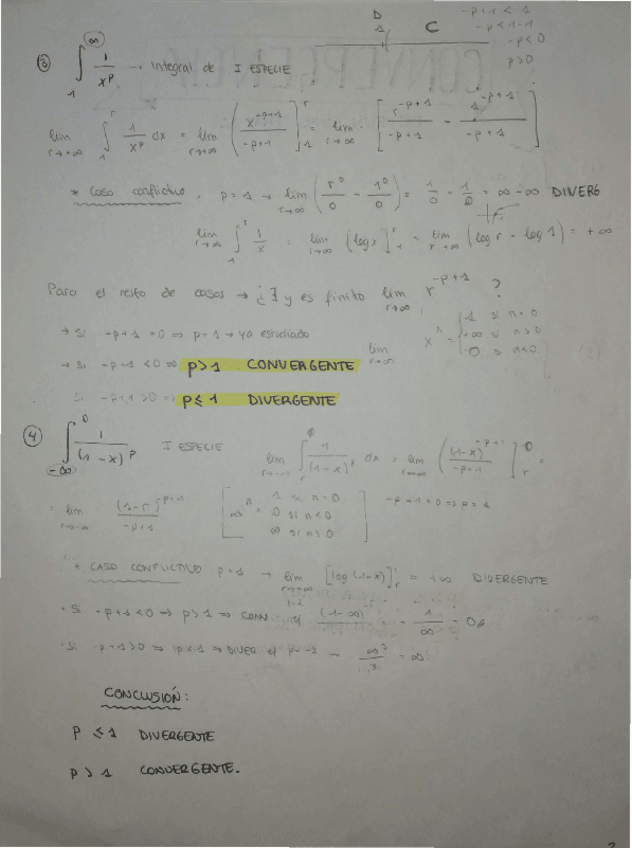 D C -p+1 < 1
1 -p < 1-1
-p < 0
p > 0
③ ∫₁^∞ 1/x^p → integral de I ESPECIE
lim r→∞ ∫₁^r 1/x^p dx = lim r→∞ (x^(-p+1)/(-p+1)]₁^r = lim r→∞ [r^(-p+1)/(-p+1) - 1^(-p+1)/(-p+1)]
* Caso conflictivo, p=1 → lim r→∞ (r⁰/0 - 1⁰/0) = 1/0 - 1/0 = ∞ - ∞ DIVERG
lim r→∞ ∫₁^r 1/x = lim r→∞ (log x]₁^r = lim r→∞ (log r - log 1) = +∞
Para el resto de casos → ¿∃ y es finito lim r→∞ r^(-p+1) ?
→ Si -p+1 = 0 ⇒ p=1 → ya estudiado
lim r→∞ x^n = { 1 si n=0
+∞ si n>0
0 si n<0
→ Si -p+1 < 0 ⇒ p>1 CONVERGENTE
Si -p+1 > 0 ⇒ p≤1 DIVERGENTE
④ ∫_-∞^0 1/(1-x)^p I ESPECIE lim r→-∞ ∫_r^0 1/(1-x)^p dx = lim r→-∞ ((1-x)^(-p+1)/(-p+1)]_r^0 =
= lim r→-∞ (1-r)^(-p+1)/(-p+1) [∞^n = 1 si n=0
0 si n<0
∞ si n>0] -p+1=0 ⇒ p=1
* CASO CONFLICTIVO p=1 → lim r→-∞ [log(1-x)]_r = +∞ DIVERGENTE
· Si -p+1<0 ⇒ p>1 ⇒ CONV (1-∞) = 1/∞ = 0
· Si -p+1>0 ⇒ p<1 ⇒ DIVER = ∞³/3 = ∞
CONCLUSIÓN:
P ≤ 1 DIVERGENTE
P > 1 CONVERGENTE.